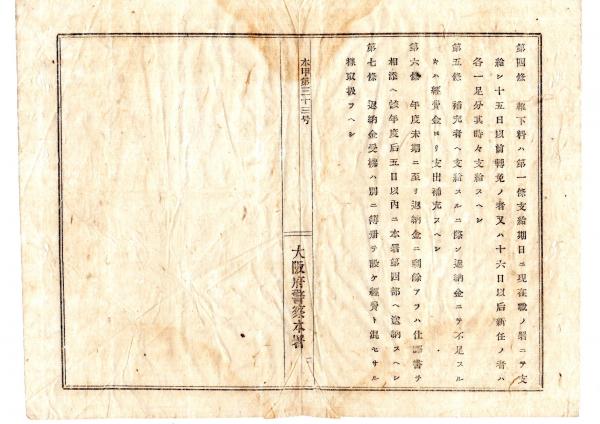 第四條 靴下料ハ第一條支給期日ニ現在職ノ署ニテ支
給シ十五日以前轉免ノ者又ハ十六日以后新任ノ者ハ
各一足分其時々支給スヘシ
第五條 補充者ヘ支給スルニ際シ返納金ニテ不足スル
トキハ經費金ヨリ支出補充スヘシ
第六條 年度末期ニ至リ返納金ニ剩餘アラハ仕譯書ヲ
相添ヘ該年度后五日以內ニ本署第四部ヘ送納スヘシ
第七條 返納金受拂ハ別ニ簿册ヲ設ケ經費ト混セサル
樣取扱フヘシ
本甲第三十三号
大阪府警察本署